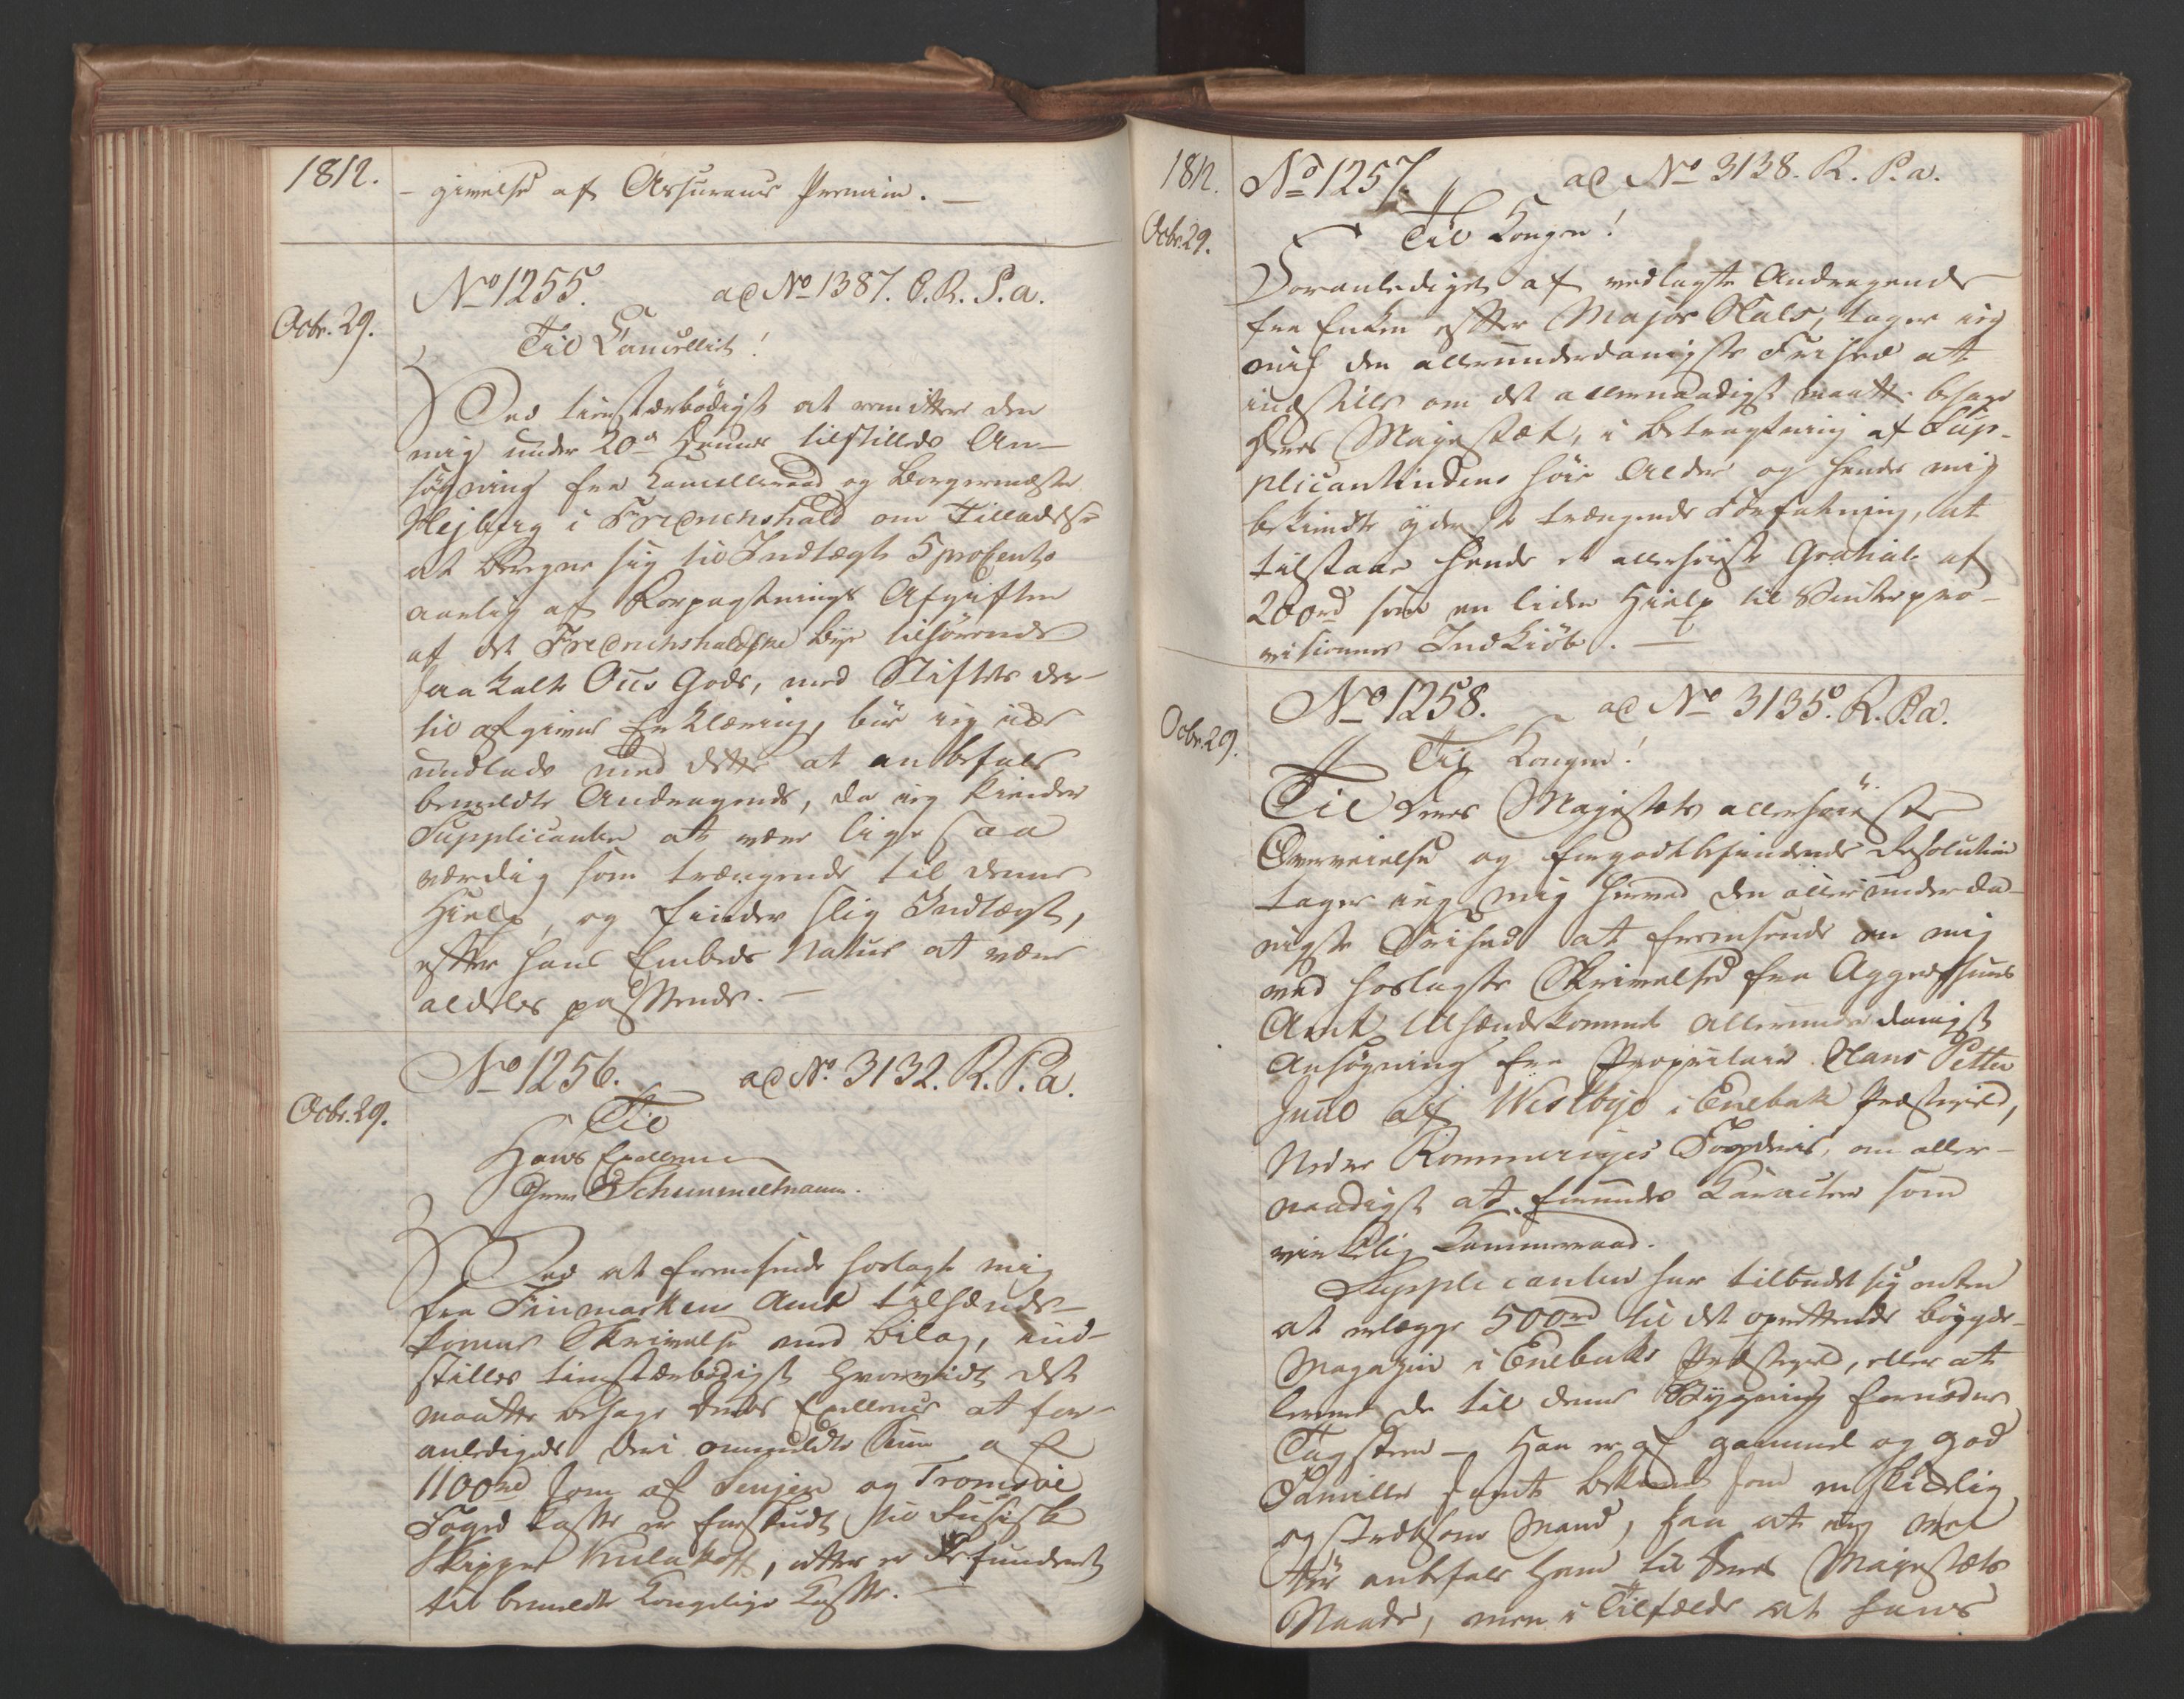 1812.
- givelse af Assurance Premie. -
No 1255. ad No 1387. C. R. P. a.
Octbr. 29.
Til Cancelliet!
Ved tienstærbödigst at remittere den
mig under 20de Dennes tilstillede An-
søgning fra Cancelliraad og Borgermester
Hejberg i Fredrichshald om Tilladelse
at beregne sig til Indtægt 5 proCento
aarlig af Forpagtnings Afgiften
af det Fredrichshaldske Bye tilhörende
saakaldte Ous Gods, med Stiftets der-
til afgivne Erklæring, bör jeg ikke
undlade med dette at anbefale
bemeldte Andragende, da jeg kiender
Supplicanten at være lige saa
værdig som trængende til denne
Hielp, og finder slig Indtægt,
efter hans Embeds Natur at være
aldeles passende. -
No 1256. ad No. 3132. R. P. a.
Octbr. 29.
Til
Hans Excellence
Herr Schimmelmann.
Ved at fremsende hoslagt mig
fra Finmarkens Amt tilhænde-
komne Skrivelse med Bilag, ind-
stilles tienstærbödigst hvorvidt det
maatte behage Deres Excellence at for-
anledige den ommeldte Sum af
1100 rd som af Senjen og Tromsöe
Foged Casse er forskudt til Russisk
Skipper Kulakoff, atter er Refunderet
til bemeldte Kongelige Casse. -
1812. No 1257. ad No 3138. R. P. a.
Octbr. 29.
Til Kongen!
Foranlediget af vedlagte Andragende
fra Enken efter Major Stals, tager jeg
mig den allerunderdanigste Frihed at
indstille om det allernaadigst maatte behage
Deres Majestæt, i Betragtning af Sup-
plicantindens höie Alder og hendes mig
bekiendte yderst trængende Forfatning, at
tilstaae hende et allerhöiste Gratiale af
200 rd som en liden Hielp til Vinterpro-
visioners Indkiöb. -
No 1258. ad No 3135. R. P. a.
Octbr. 29.
Til Kongen!
Til Deres Majestæts allerhöieste
Overveielse og forgodtbefindende Resolution
tager jeg mig herved den allerunderda-
nigste Frihed at fremsende en mig
med hoslagte Skrivelse fra Aggershuus
Amt tilhændekommet allerunderdanigst
Ansøgning fra Proprietair Hans Petter
Juul af Westbye i Enebak Præstegield,
Nedre Rommeriges Fogderie, om aller-
naadigst at forundes Caracter som
virkelig Kammerraad.
Supplicanten har tilbudet sig enten
at erlægge 500 rd til det oprettende Bygde-
Magazin i Enebaks Præstegield, eller at
levere de til denne Bygning fornødne
Tagsteen - Han er af gammel og god
Familie samt bekiendt som en skikkelig
og stræbsom Mand, saa at jeg vel
tör anbefale ham til Deres Majestæts
Naade, men i Tilfælde at hans